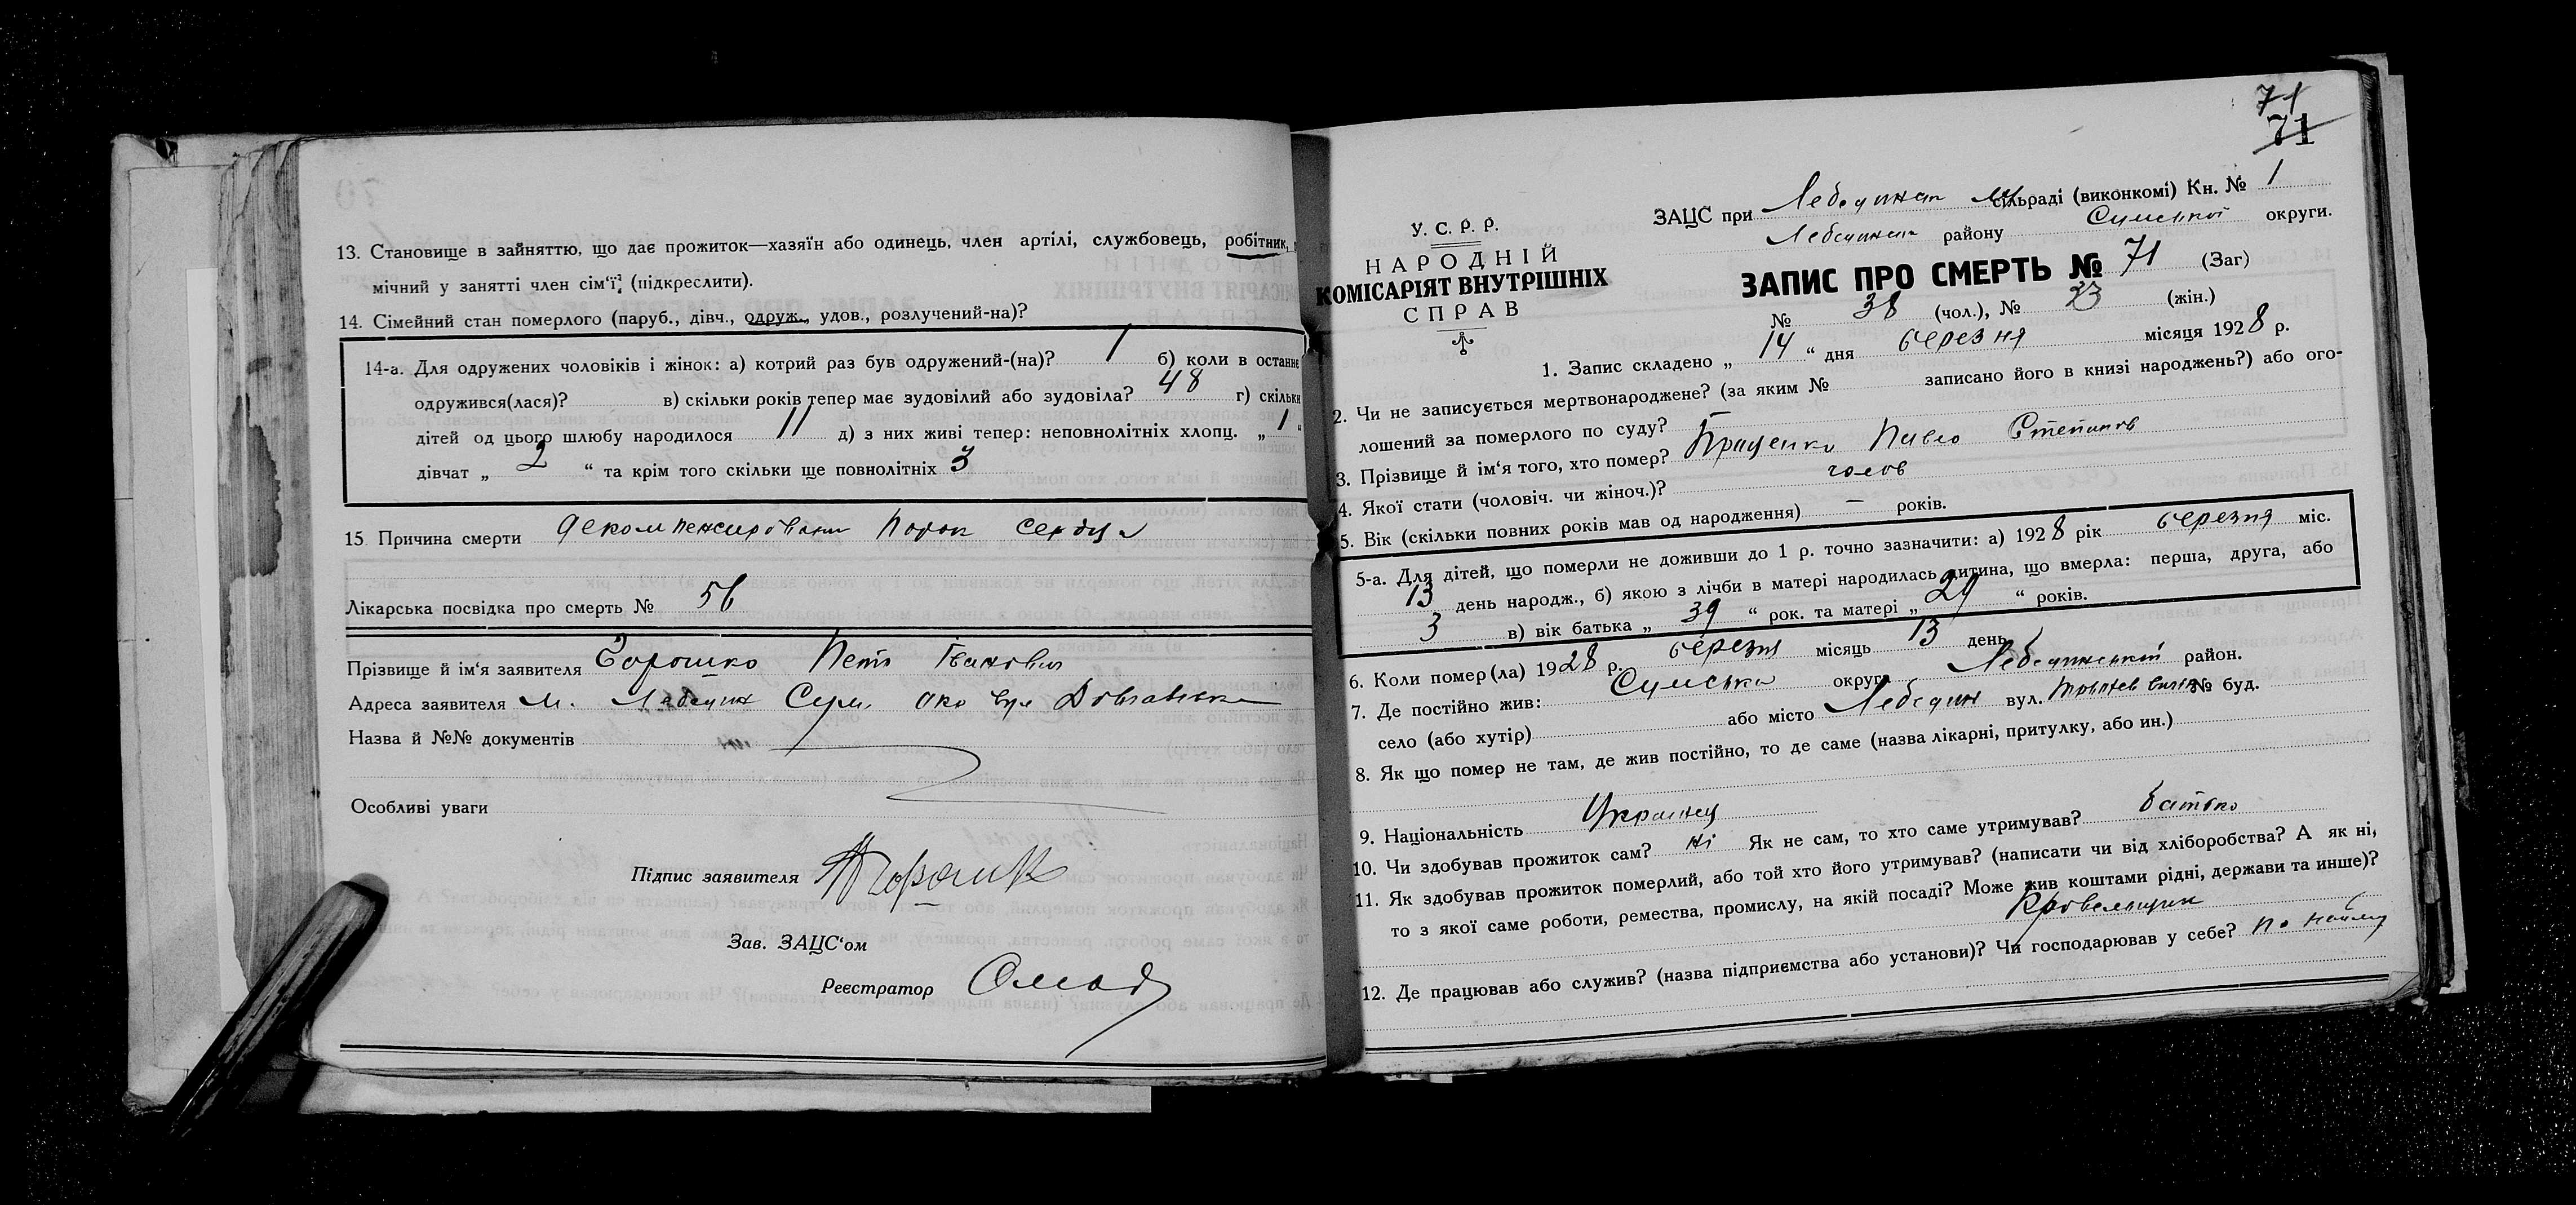 13. Становище в зайняттю, що дає прожиток—хазяїн або одинець, член артілі, службовець, робітник,
мічний у занятті член сім'ї; (підкреслити).
14. Сімейний стан померлого (паруб., дівч., одруж., удов., розлучений-на)?
14-а. Для одружених чоловіків і жінок: а) котрий раз був одружений-(на)? 1 б) коли в останнє
одружився(лася)? в) скільки років тепер має зудовілий або зудовіла? 48 г) скільки
дітей од цього шлюбу народилося 11 д) з них живі тепер: неповнолітніх хлопц. „ 1 "
дівчат „ 2 “ та крім того скільки ще повнолітніх 3
15. Причина смерти декомпенсирован порок сердца
Лікарська посвідка про смерть № 56
Прізвище й ім'я заявителя Горошко Петр Іванович
Адреса заявителя м. Лебедин Сум. окр вул
Назва й №№ документів
Особливі уваги
Підпис заявителя
Зав. ЗАЦС‘ом
Реєстратор
71
71
У. С. Р. Р.
НАРОДНІЙ
КОМІСАРІЯТ ВНУТРІШНІХ
СПРАВ
ЗАЦС при Лебединск сільраді (виконкомі) Кн. № 1
Лебединск району Сумської округи.
ЗАПИС ПРО СМЕРТЬ № 71 (Заг)
№ 38 (чол.), № 23 (жін.)
1. Запис складено „ 14 “ дня березня місяця 1928 р.
2. Чи не записується мертвонароджене? (за яким № записано його в книзі народжень?) або ого-
лошений за померлого по суду? —
3. Прізвище й ім‘я того, хто помер? Павло Степанов
4. Якої стати (чоловіч. чи жіноч.)? чолов
5. Вік (скільки повних років мав од народження) — років.
5-а. Для дітей, що померли не доживши до 1 р. точно зазначити: а) 1928 рік березня міс.
13 день народж., б) якою з лічби в матері народилась дитина, що вмерла: перша, друга, або
3 в) вік батька „ 39 “ рок. та матері „ 29 “ років.
6. Коли помер(ла) 1928 р. березня місяць 13 день
7. Де постійно жив: Сумська округа Лебединський район.
село (або хутір) або місто Лебедин вул. № буд.
8. Як що помер не там, де жив постійно, то де саме (назва лікарні, притулку, або ин.)
9. Національність Украинец
10. Чи здобував прожиток сам? ні Як не сам, то хто саме утримував? батько
11. Як здобував прожиток померлий, або той хто його утримував? (написати чи від хліборобства? А як ні,
то з якої саме роботи, ремества, промислу, на якій посаді? Може жив коштами рідні, держави та инше)?
Кровельщик
12. Де працював або служив? (назва підприємства або установи)? Чи господарював у себе? по найму